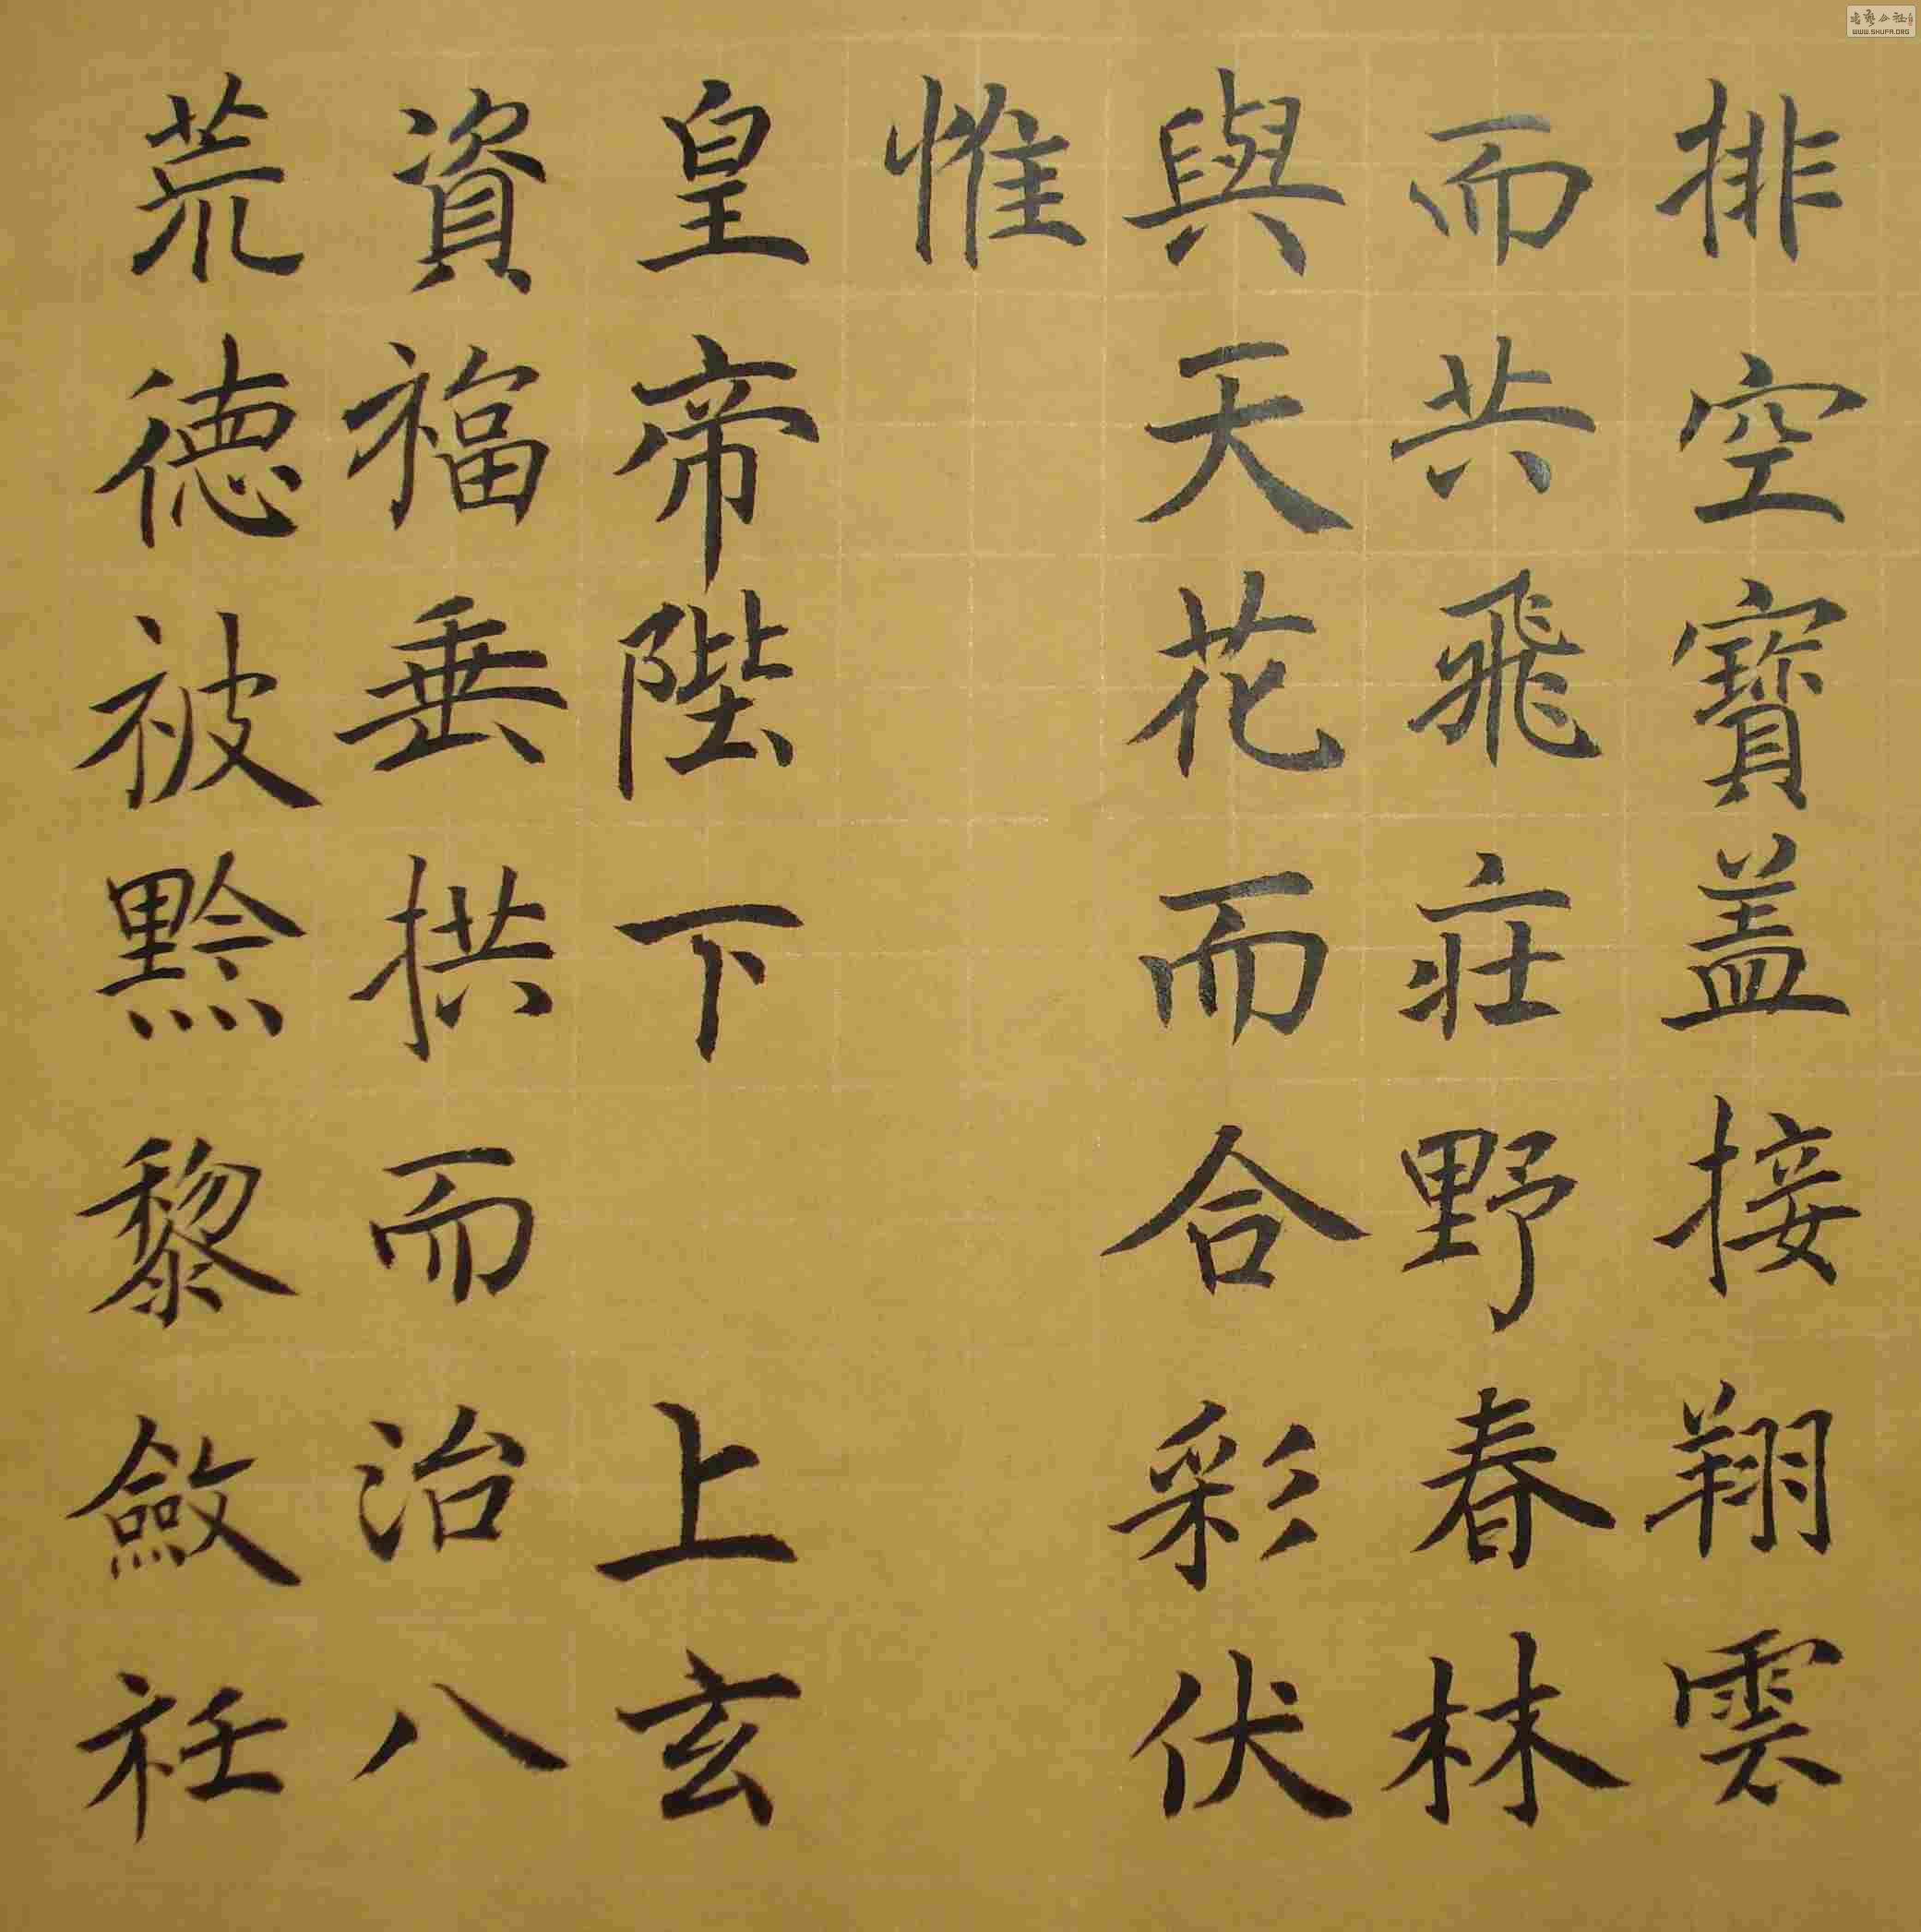 排空寶蓋接翔雲
而共飛莊野春林
與天花而合彩伏
惟
皇帝陛下 上玄
資福垂拱而治八
荒德被黔黎斂衽
WWW.SHUFA.ORG